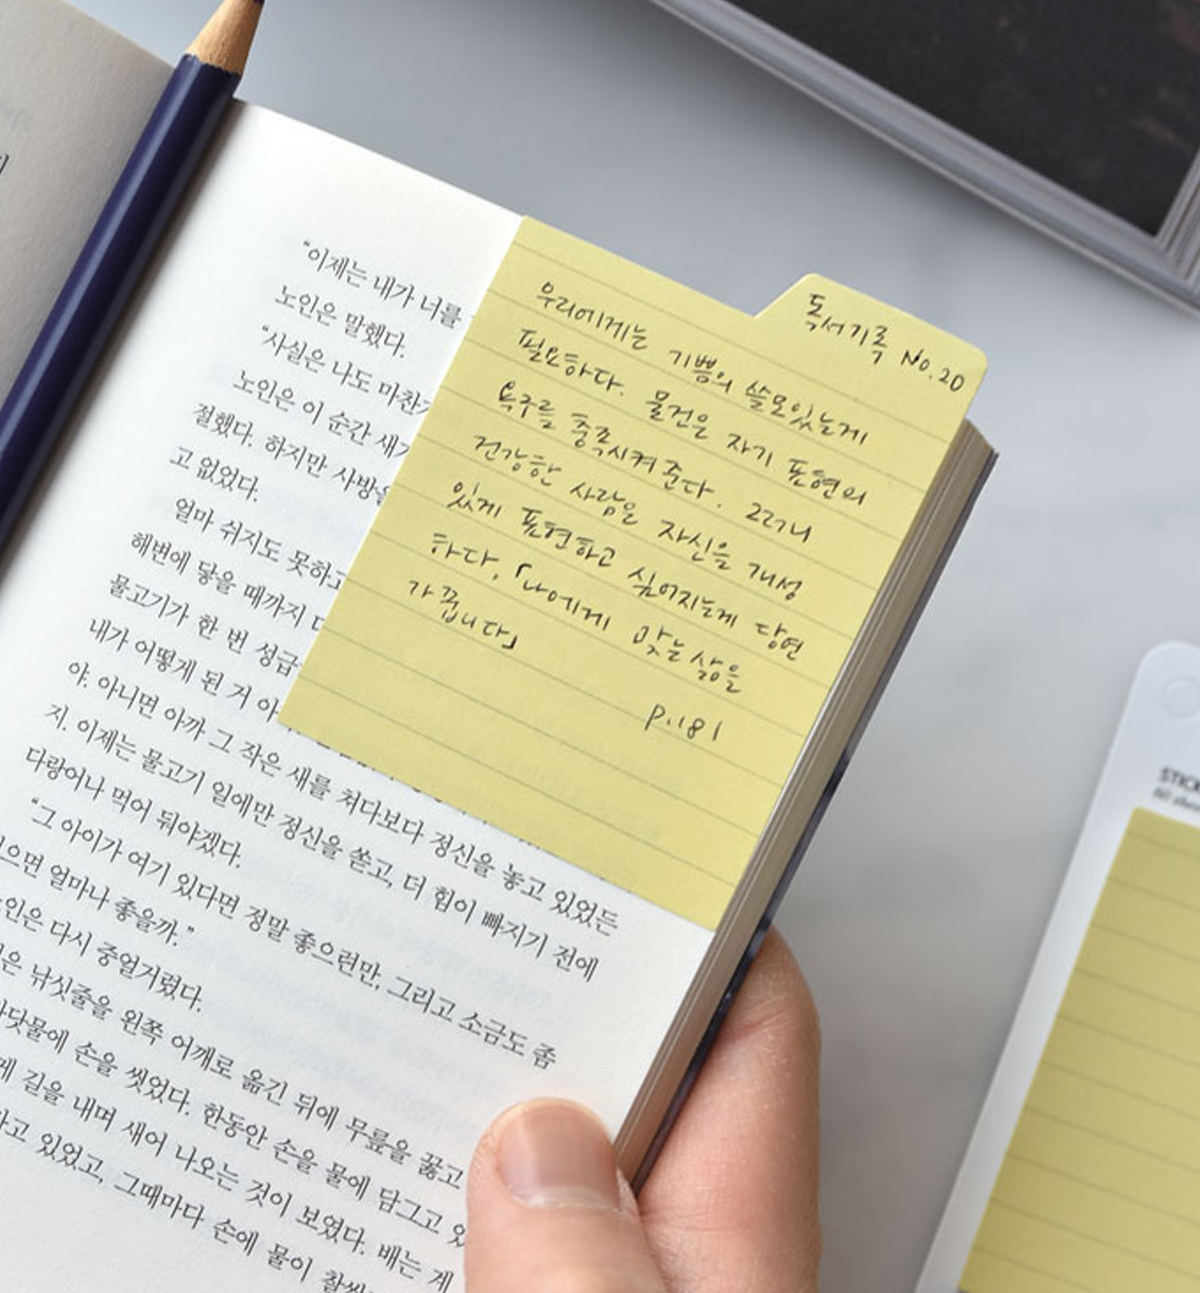 독서기록 No.20
우리에게는 기쁨의 쓸모있는게
필요하다. 물건은 자기 표현의
욕구를 충족시켜 준다. 그러니
건강한 사람은 자신을 개성
있게 표현하고 싶어지는게 당연
하다. 「나에게 맞는 삶을
가꿉니다」
p.181
“이제는 내가 너를
노인은 말했다.
“사실은 나도 마찬가
노인은 이 순간 새
절했다. 하지만 사방을
고 없었다.
얼마 쉬지도 못하고
해변에 닿을 때까지
물고기가 한 번 성급
내가 어떻게 된 거 아
야. 아니면 아까 그 작은 새를 쳐다보다 정신을 놓고 있었든
지. 이제는 물고기 일에만 정신을 쏟고, 더 힘이 빠지기 전에
다랑어나 먹어 둬야겠다.
“그 아이가 여기 있다면 정말 좋으련만, 그리고 소금도 좀
으면 얼마나 좋을까.”
인은 다시 중얼거렸다.
은 낚싯줄을 왼쪽 어깨로 옮긴 뒤에 무릎을 꿇고
닷물에 손을 씻었다. 한동안 손을 물에 담그고 있
게 길을 내며 새어 나오는 것이 보였다. 배는 계
고 있었고, 그때마다 손에 물이